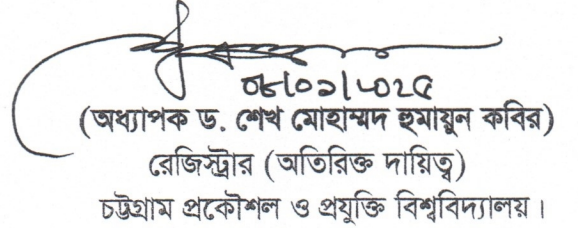 ০৮/০১/২০২৫
(অধ্যাপক ড. শেখ মোহাম্মদ হুমায়ুন কবির)
রেজিস্ট্রার (অতিরিক্ত দায়িত্ব)
চট্টগ্রাম প্রকৌশল ও প্রযুক্তি বিশ্ববিদ্যালয়।